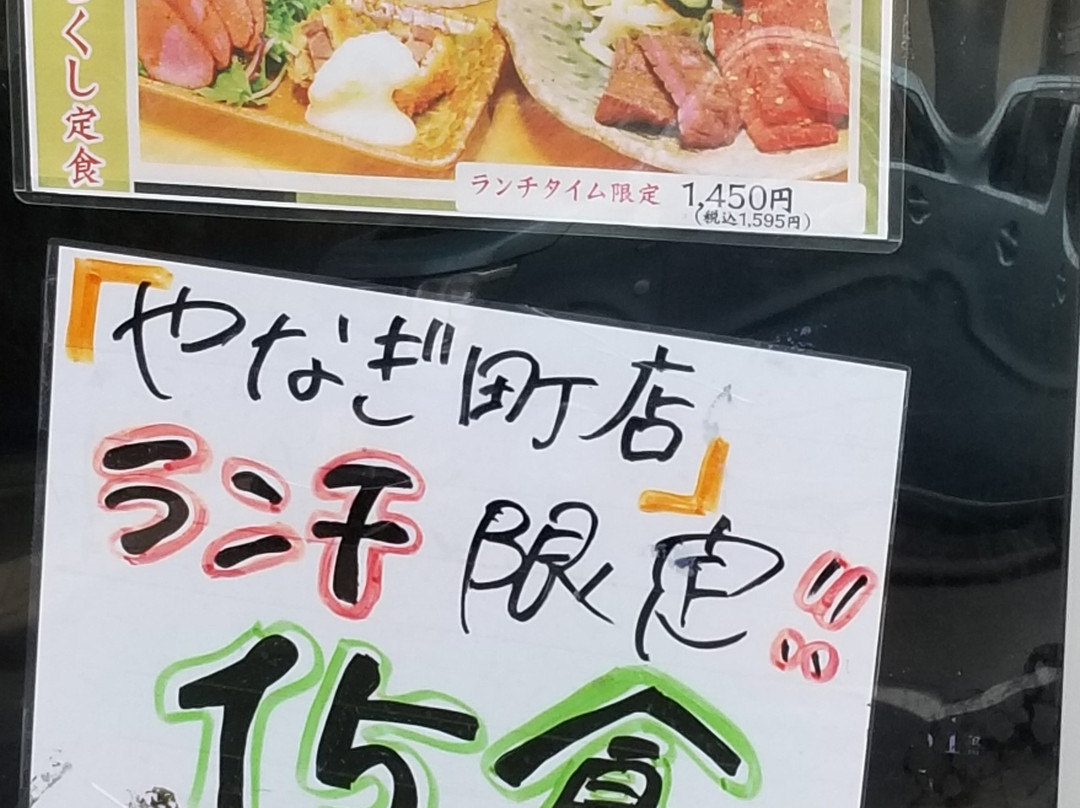 くし定食
ランチタイム限定 1,450円
(税込1,595円)
「やなぎ町店」
ランチ 限定!!
15食